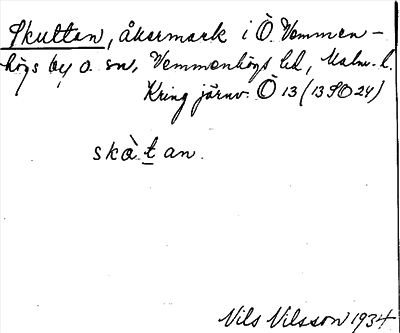 Skuttan, åkermark i Ö. Vemmen-
högs by o. sn, Vemmenhögs hd, Malm. l.
Kring järnv. Ö 13 (13 SO 24)
skàt an.
Nils Nilsson 1934